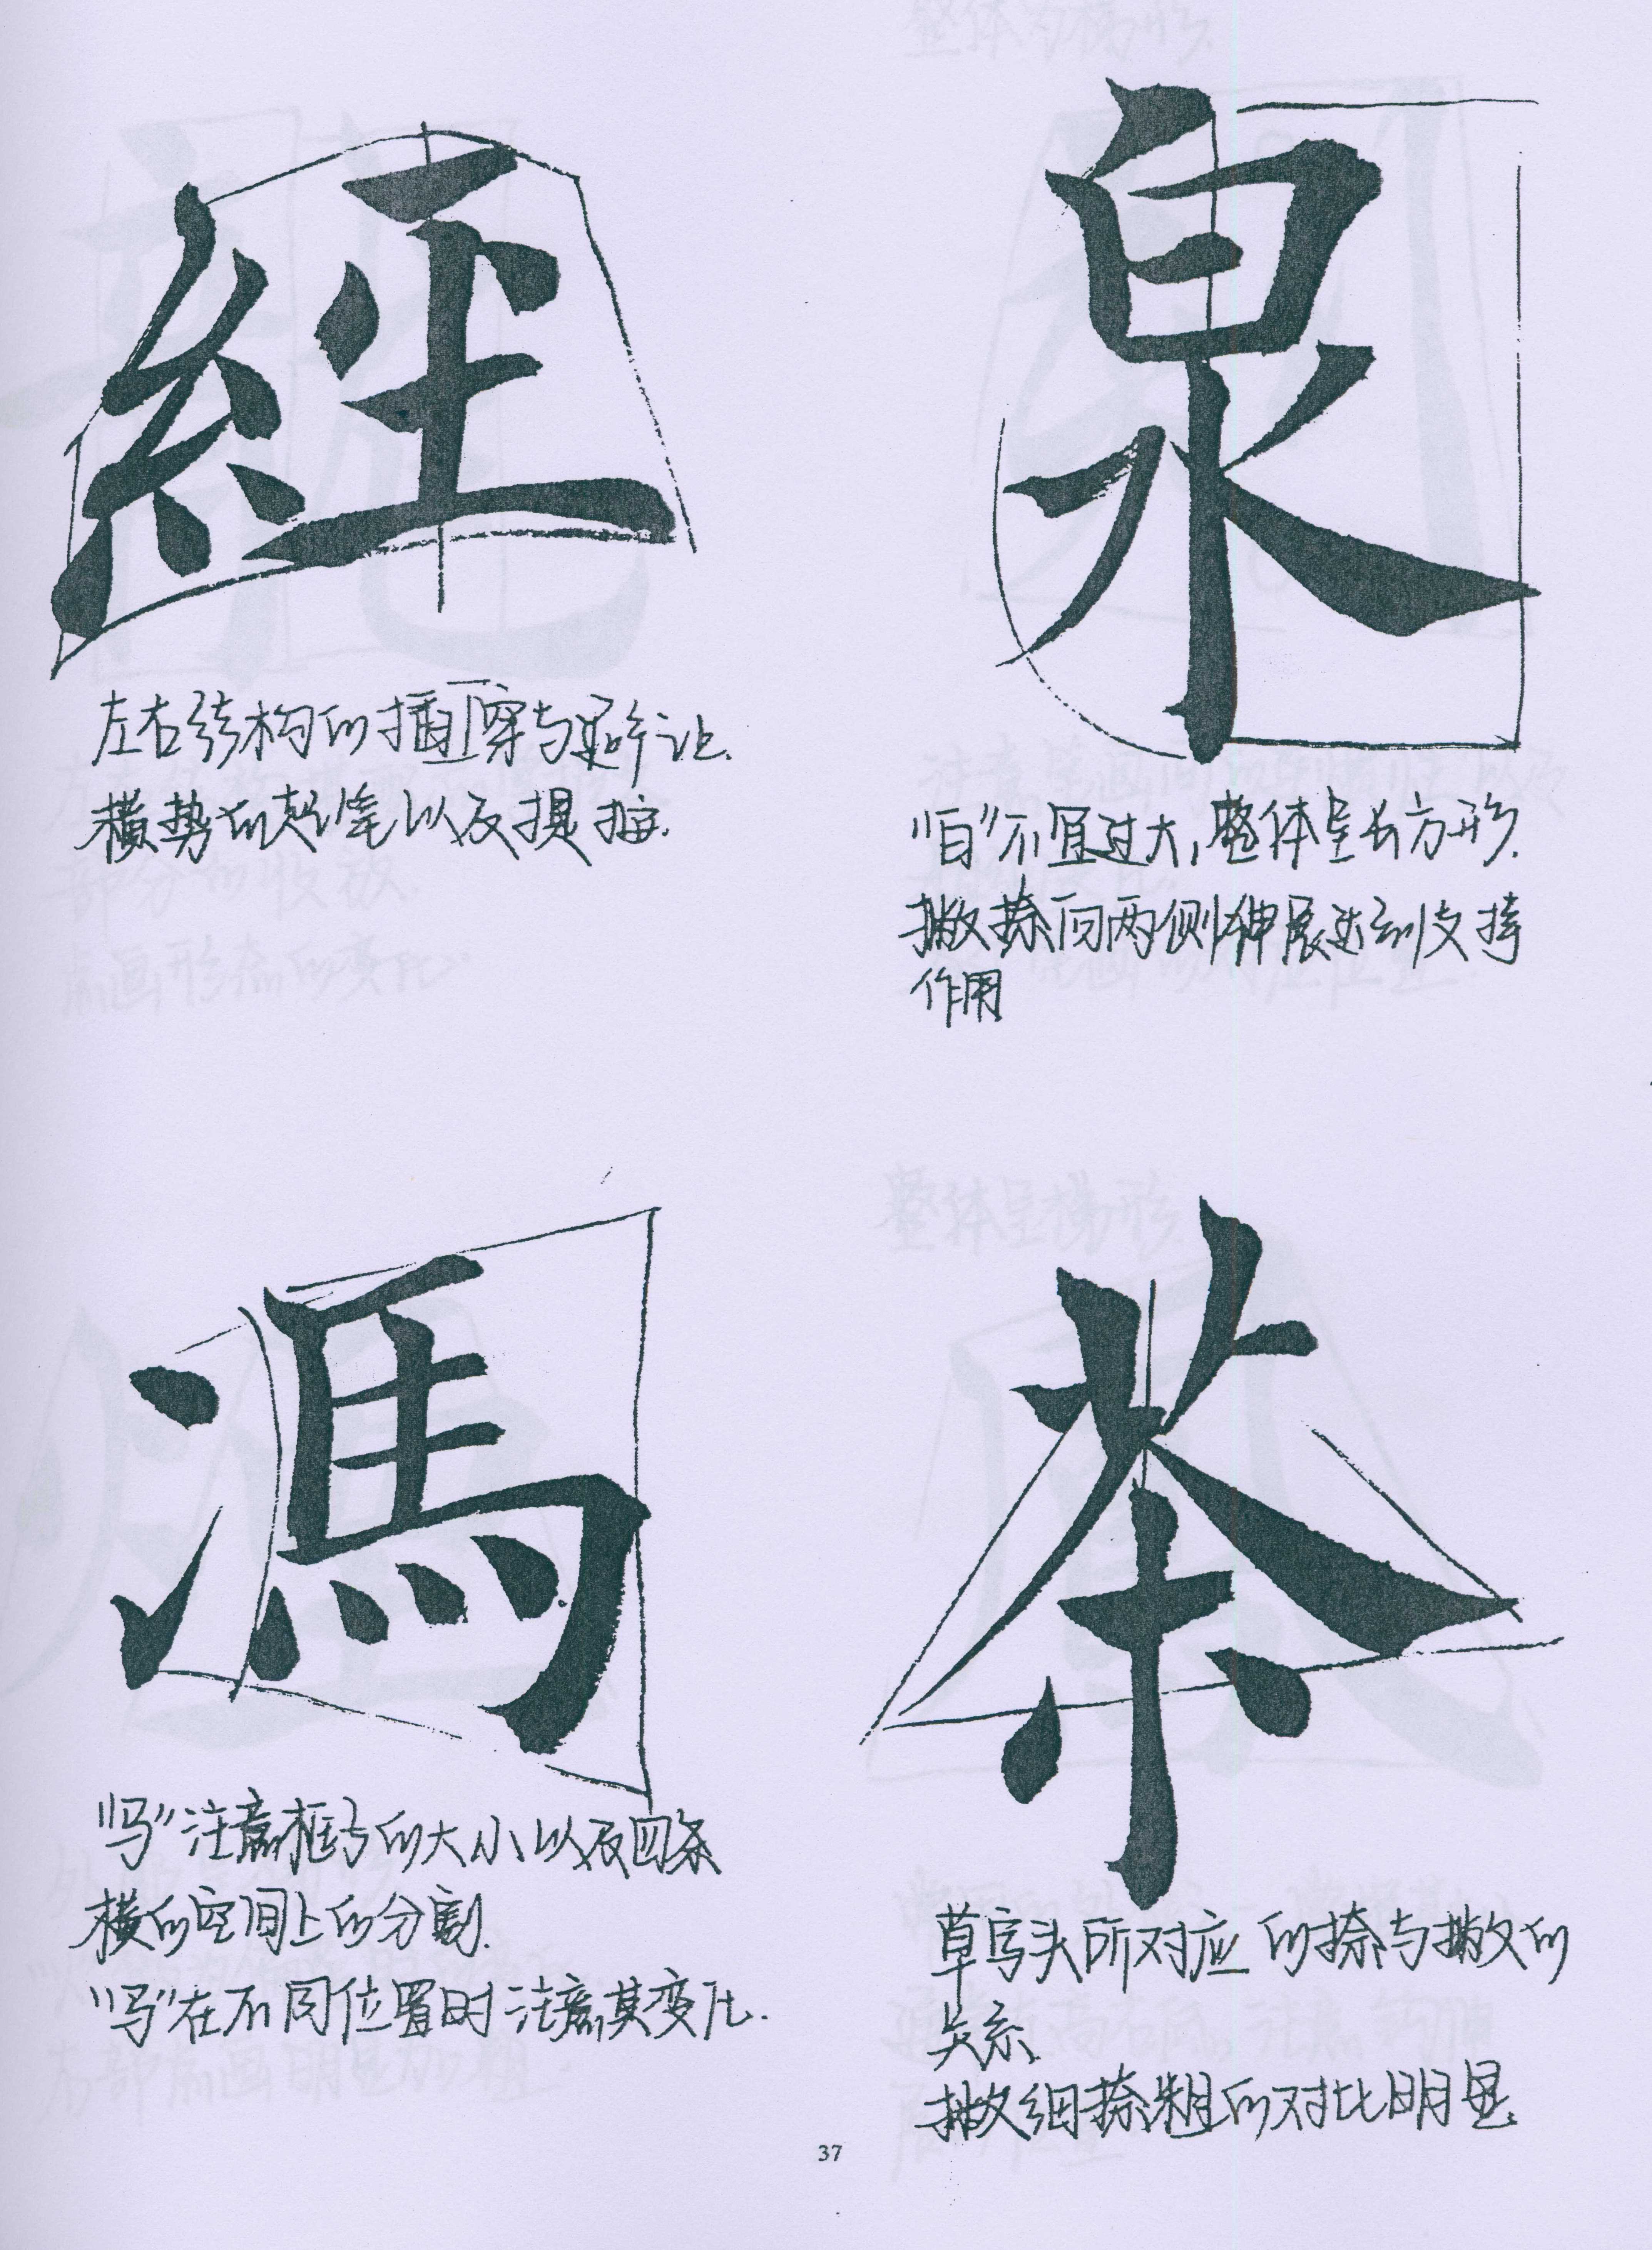 經
左右结构的插穿与避让.
横势的起笔以及提按.
泉
"白"不宜过大,整体呈长方形.
撇捺向两侧伸展达到支撑
作用
馮
"马"注意框与的大小以及四条
横的空间上的分割.
"马"在不同位置时注意其变化.
茶
草字头所对应的捺与撇的
关系.
撇细捺粗的对比明显.
37